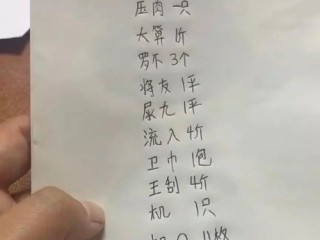 压肉 一只
大算 1斤
罗不 3个
将友 1平
尿九 1平
流入 4斤
卫巾 1包
王刮 4斤
机 1只